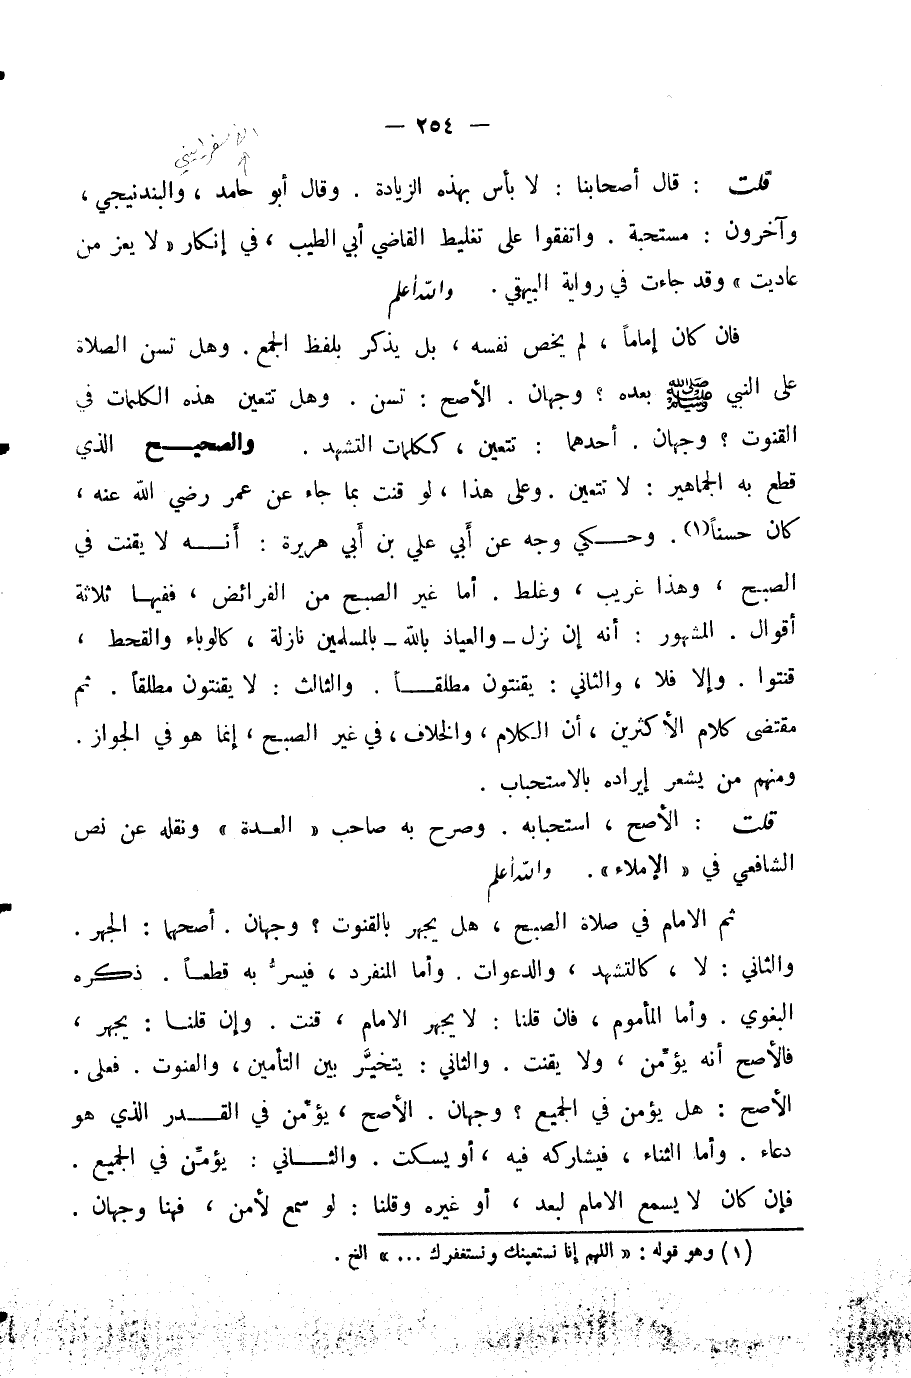 — ٢٥٤ —
الاسفرايني
قلت : قال أصحابنا : لا بأس بهذه الزيادة . وقال أبو حامد ، والبندنيجي ،
وآخرون : مستحبة . واتفقوا على تغليط القاضي أبي الطيب ، في إنكار « لا يعز من
عاديت » وقد جاءت في رواية البيهقي . والله أعلم
فان كان إماماً ، لم يخص نفسه ، بل يذكر بلفظ الجمع . وهل تسن الصلاة
على النبي ﷺ بعده ؟ وجهان . الأصح : تسن . وهل تتعين هذه الكلمات في
القنوت ؟ وجهان . أحدهما : تتعين ، ككلمات التشهد . والصحيـــح الذي
قطع به الجماهير : لا تتعين . وعلى هذا ، لو قنت بما جاء عن عمر رضي الله عنه ،
كان حسناً(١) . وحـــكي وجه عن أبي علي بن أبي هريرة : أنـــه لا يقنت في
الصبح ، وهذا غريب ، وغلط . أما غير الصبح من الفرائض ، ففيهـا ثلاثة
أقوال . المشهور : أنه إن نزل ـ والعياذ بالله ـ بالمسلمين نازلة ، كالوباء والقحط ،
قنتوا . وإلا فلا ، والثاني : يقنتون مطلقـــاً . والثالث : لا يقنتون مطلقاً . ثم
مقتضى كلام الأكثرين ، أن الكلام ، والخلاف ، في غير الصبح ، إنما هو في الجواز .
ومنهم من يشعر إيراده بالاستحباب .
قلت : الأصح ، استحبابه . وصرح به صاحب « العـدة » ونقله عن نص
الشافعي في « الإملاء » . والله أعلم
ثم الامام في صلاة الصبح ، هل يجهر بالقنوت ؟ وجهان . أصحها : الجهر .
والثاني : لا ، كالتشهد ، والدعوات . وأما المنفرد ، فيسرُّ به قطعـاً . ذكره
البغوي . وأما المأموم ، فان قلنا : لا يجهر الامام ، قنت . وإن قلنـا : يجهر ،
فالأصح أنه يؤمّن ، ولا يقنت . والثاني : يتخيَّر بين التأمين ، والقنوت . فعلى .
الأصح : هل يؤمن في الجميع ؟ وجهان . الأصح ، يؤمّن في القـــدر الذي هو
دعاء . وأما الثناء ، فيشاركه فيه ، أو يسكت . والثـــاني : يؤمّن في الجميع .
فإن كان لا يسمع الامام لبعد ، أو غيره وقلنا : لو سمع لأمن ، فهنا وجهان .
(١) وهو قوله : « اللهم إنا نستعينك ونستغفرك ... » الخ .